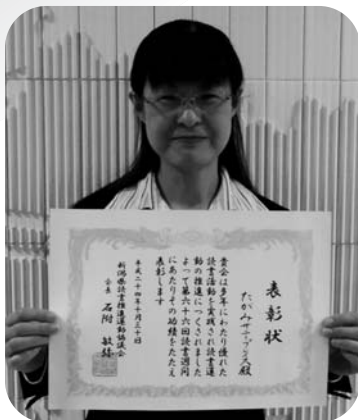 表彰状
たかみサティックス殿
貴会は多年にわたり優れた
読書活動を実践され読書運
動の推進につくされました
よって第六十六回読書週間
にあたりその功績をたたえ
表彰します
平成二十四年十月三十日
新潟県読書推進運動協議会
会長 石附 敏